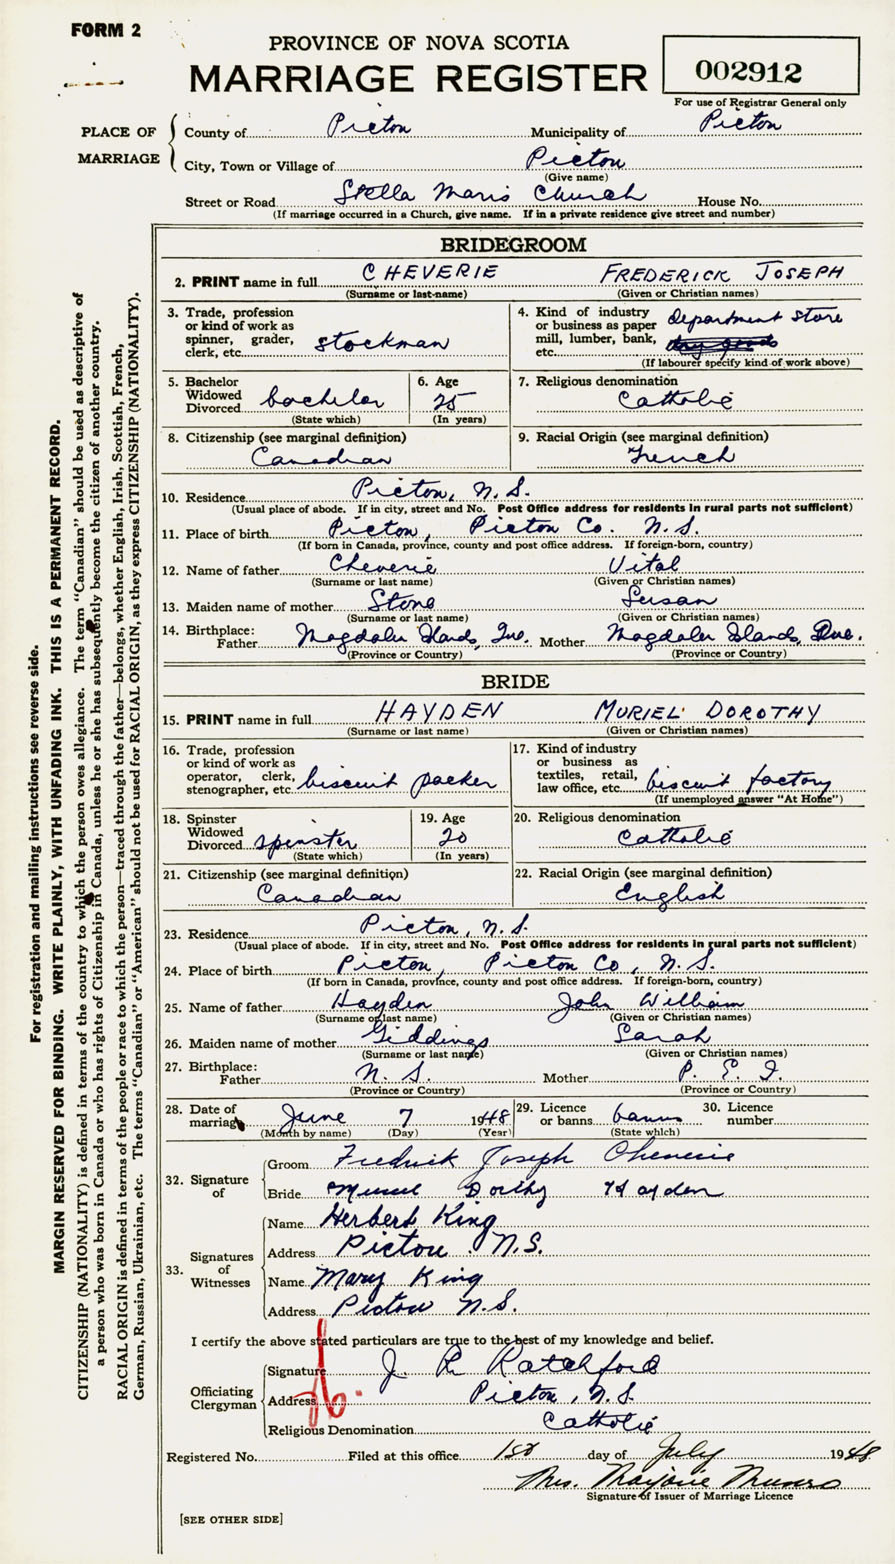 FORM 2
PROVINCE OF NOVA SCOTIA
MARRIAGE REGISTER
002912
For use of Registrar General only
PLACE OF MARRIAGE
County of Picton Municipality of Picton
City, Town or Village of Picton
(Give name)
Street or Road Stella Maris Church House No.
(If marriage occurred in a Church, give name. If in a private residence give street and number)
BRIDEGROOM
2. PRINT name in full CHEVERIE FREDERICK JOSEPH
(Surname or last-name) (Given or Christian names)
3. Trade, profession or kind of work as spinner, grader, clerk, etc. stockman
4. Kind of industry or business as paper mill, lumber, bank, etc. department store
(If labourer specify kind of work above)
5. Bachelor Widowed Divorced bachelor
(State which)
6. Age 25
(In years)
7. Religious denomination
Catholic
8. Citizenship (see marginal definition)
Canadian
9. Racial Origin (see marginal definition)
French
10. Residence Picton, N.S.
(Usual place of abode. If in city, street and No. Post Office address for residents in rural parts not sufficient)
11. Place of birth Picton, Picton Co. N.S.
(If born in Canada, province, county and post office address. If foreign-born, country)
12. Name of father Cheverie Vital
(Surname or last name) (Given or Christian names)
13. Maiden name of mother Stone Susan
(Surname or last name) (Given or Christian names)
14. Birthplace:
Father Magdalen Islands, Que. Mother Magdalen Islands, Que.
(Province or Country) (Province or Country)
BRIDE
15. PRINT name in full HAYDEN MURIEL DOROTHY
(Surname or last name) (Given or Christian names)
16. Trade, profession or kind of work as operator, clerk, stenographer, etc. biscuit packer
17. Kind of industry or business as textiles, retail, law office, etc. biscuit factory
(If unemployed answer "At Home")
18. Spinster Widowed Divorced spinster
(State which)
19. Age 20
(In years)
20. Religious denomination
Catholic
21. Citizenship (see marginal definition)
Canadian
22. Racial Origin (see marginal definition)
English
23. Residence Picton, N.S.
(Usual place of abode. If in city, street and No. Post Office address for residents in rural parts not sufficient)
24. Place of birth Picton, Picton Co, N.S.
(If born in Canada, province, county and post office address. If foreign-born, country)
25. Name of father Hayden John William
(Surname or last name) (Given or Christian names)
26. Maiden name of mother Giddings Sarah
(Surname or last name) (Given or Christian names)
27. Birthplace:
Father N.S. Mother P.E.I.
(Province or Country) (Province or Country)
28. Date of marriage June 7 1948
(Month by name) (Day) (Year)
29. Licence or banns banns
(State which)
30. Licence number
32. Signature of
Groom Fredrick Joseph Cheverie
Bride Muriel Dorthy Hayden
33. Signatures of Witnesses
Name Herbert King
Address Pictou N.S.
Name Mary King
Address Pictou N.S.
I certify the above stated particulars are true to the best of my knowledge and belief.
Officiating Clergyman
Signature J. R. Ratchford
Address Picton, N.S.
Religious Denomination Catholic
Registered No. Filed at this office 1st day of July 1948
Mrs. Marjorie Munro
Signature of Issuer of Marriage Licence
[SEE OTHER SIDE]
For registration and mailing instructions see reverse side.
MARGIN RESERVED FOR BINDING. WRITE PLAINLY, WITH UNFADING INK. THIS IS A PERMANENT RECORD.
CITIZENSHIP (NATIONALITY) is defined in terms of the country to which the person owes allegiance. The term "Canadian" should be used as descriptive of
a person who was born in Canada or who has rights of Citizenship in Canada, unless he or she has subsequently become the citizen of another country.
RACIAL ORIGIN is defined in terms of the people or race to which the person—traced through the father—belongs, whether English, Irish, Scottish, French,
German, Russian, Ukrainian, etc. The terms "Canadian" or "American" should not be used for RACIAL ORIGIN, as they express CITIZENSHIP (NATIONALITY).